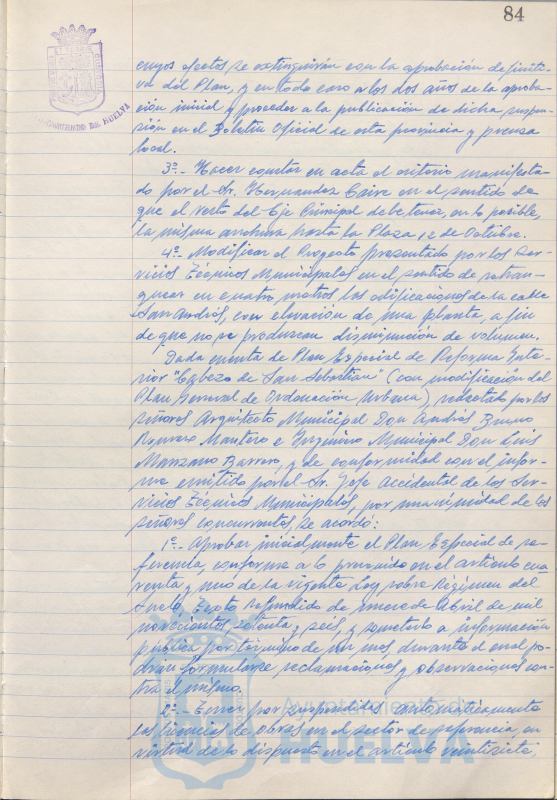 84
AYUNTAMIENTO DE HUELVA
cuyos efectos se extinguirán con la aprobación definiti-
va del Plan, y en todo caso a los dos años de la aproba-
ción inicial y proceder a la publicación de dicha suspen-
sión en el Boletín Oficial de esta provincia y prensa
local.
3º.- Hacer constar en acta el criterio manifesta-
do por el Sr. Hernandez Caire en el sentido de
que el resto del Eje Principal debe tener, en lo posible,
la misma anchura hasta la Plaza 12 de Octubre.
4º.- Modificar el Proyecto presentado por los Ser-
vicios Técnicos Municipales en el sentido de retran-
quear en cuatro metros las edificaciones de la calle
San Andrés, con elevación de una planta, a fin
de que no se produzcan disminución de volumen.
Dada cuenta de Plan Especial de Reforma Inte-
rior "Cabezo de San Sebastian" (con modificación del
Plan General de Ordenación Urbana) redactado por los
señores Arquitecto Municipal Don Andrés Bruno
Romero Mantero e Ingeniero Municipal Don Luis
Manzano Barrero, y de conformidad con el infor-
me emitido por el Sr. Jefe Accidental de los Ser-
vicios Técnicos Municipales, por unanimidad de los
señores concurrentes, se acordó:
1º.- Aprobar inicialmente el Plan Especial de re-
ferencia, conforme a lo prevenido en el artículo cua
renta y uno de la vigente Ley sobre Régimen del
Suelo, Texto Refundido de nueve de Abril de mil
novecientos setenta y seis, y someterlo a información
pública por término de un mes, durante el cual po-
drán formularse reclamaciones y observaciones con-
tra el mismo.
2º.- Tener por suspendidas automáticamente
las licencias de obras en el sector de referencia, en
virtud de lo dispuesto en el artículo veintisiete,
Ayuntamiento de
HUELVA